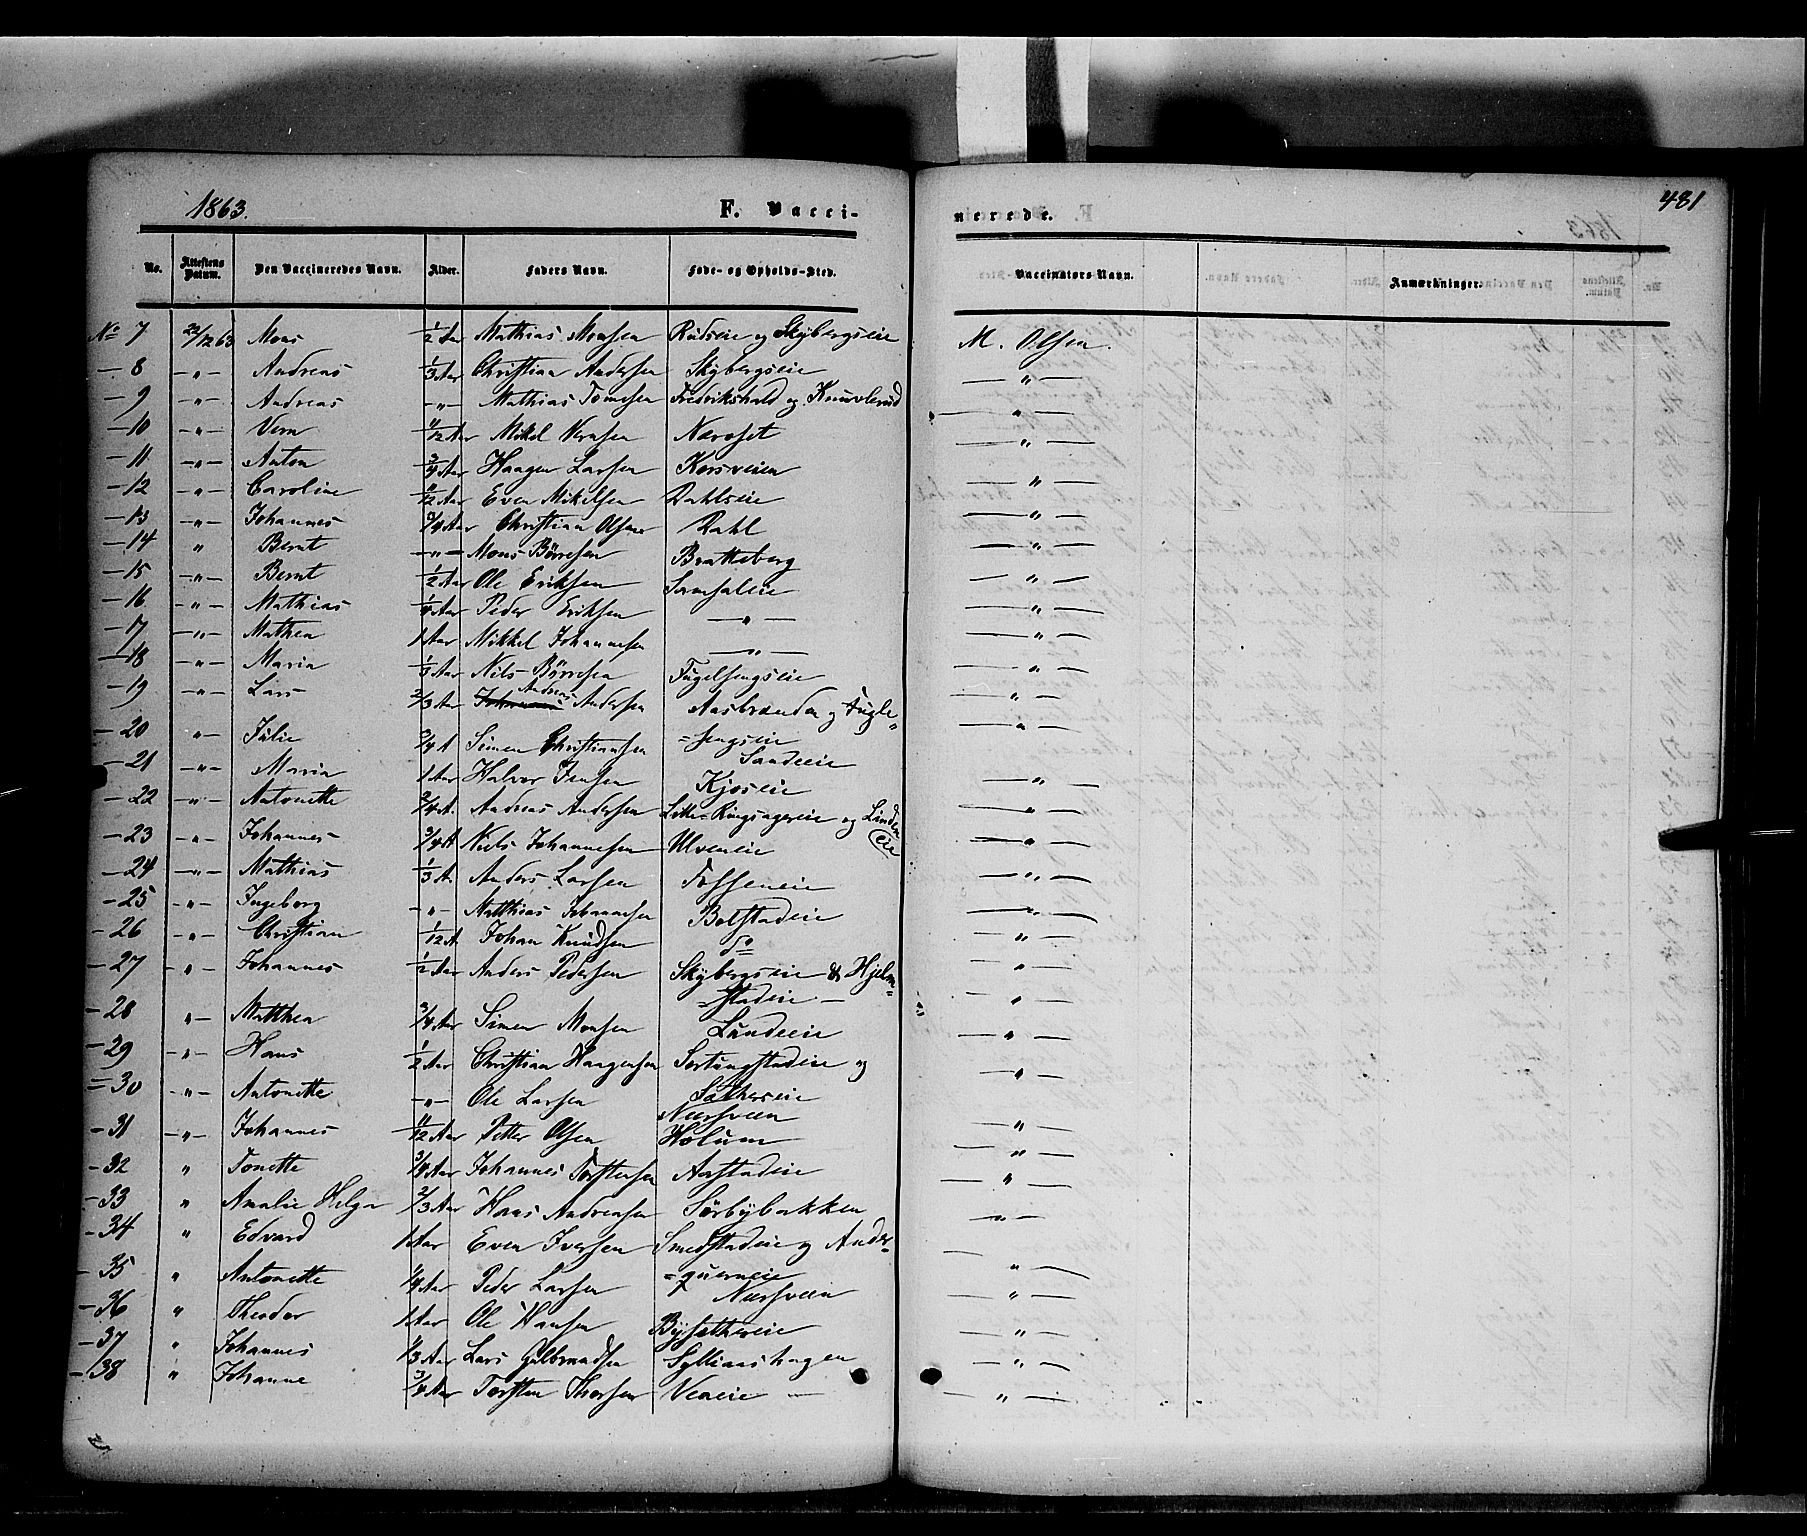 1863.
F. Vacci-
nerede.
481
No. Attestens Datum. Den Vaccineredes Navn. Alder. Faders Navn. Føde- og Opholds-Sted. Vaccinators Navn. Anmærkninger.
No 7 22/12 63 Mons 1/2 Aar Mathias Monsen Rudseie og Skybergseie M. Olsen.
- 8 -"- Andreas 1/3 Aar Christian Andersen Skybergseie -"-
- 9 -"- Andreas -"- Mathias Fredrikshald og -"-
- 10 -"- 11/12 Aar Mikel Næroset -"-
- 11 -"- Anton 3/4 Aar Haagen Larsen Korsveien -"-
- 12 -"- Caroline 11/12 Aar Even Mikelsen Dahlseie -"-
- 13 -"- Johannes 3/4 Aar Christian Olsen Dahl -"-
- 14 " Bernt -"- Mons Børresen Bratteberg -"-
- 15 -"- Bernt 1/2 Aar Ole Eriksen Samsaleie -"-
- 16 -"- Mathias 1/4 Aar Peder Eriksen -"- -"-
- 17 -"- Mathea 1 Aar Mikkel Johannesen -"- -"-
- 18 -"- Maria 1/3 Aar Nils Børresen Fugelsengseie -"-
- 19 -"- Lars 2/3 Aar Andreas Andersen Aasbrænden og Fugle- -"-
=sengseie
- 20 -"- Julie 3/4 A Simen Christiansen Sandeeie -"-
- 21 -"- Maria 1 Aar Halvor Jensen Kjoseie -"-
- 22 -"- Antonette 3/4 A. Andreas Andersen Lille-Ringsagereie og Linden -"-
eie
- 23 -"- Johannes 3/4 A Niels Johannesen Ulveneie -"-
- 24 -"- Mathias 1/3 A. Anders Larsen -"-
- 25 -"- Ingeborg -"- Matthias Johannesen Bolstadeie -"-
- 26 -"- Christian 1/12 A Johan Knudsen do -"-
- 27 -"- Johannes 1/2 Aar Anders Pedersen Skybergseie & Hjelm= -"-
=stadeie -
- 28 -"- Matthea 3/4 Aar Simen Monsen Lundeeie -"-
- 29 -"- Hans 1/2 Aar Christian Haagensen og -"-
Sætherseie
= 30 -"- Antonette -"- Ole Larsen Næsveen -"-
- 31 -"- Johannes 11/12 Aar Petter Olsen Holum -"-
- 32 " Tonette 3/4 Aar Johannes Torstensen Aastadeie -"-
- 33 " Amalie Helga 2/3 Aar Hans Andreasen Sørbybakken -"-
- 34 " Edvard 1 Aar Even Iversen Smedstadeie og Ander- -"-
=querneie
- 35 " Antonette 1/4 Aar Peder Larsen Næsveen -"-
- 36 " Theodor 1 Aar Ole Hansen Bysæthereie -"-
- 37 " Johannes 1/3 Aar Lars Gulbrandsen Sylliaashagen -"-
- 38 " Johanne 3/4 Aar Torsten Thorsen Veneie - -"-